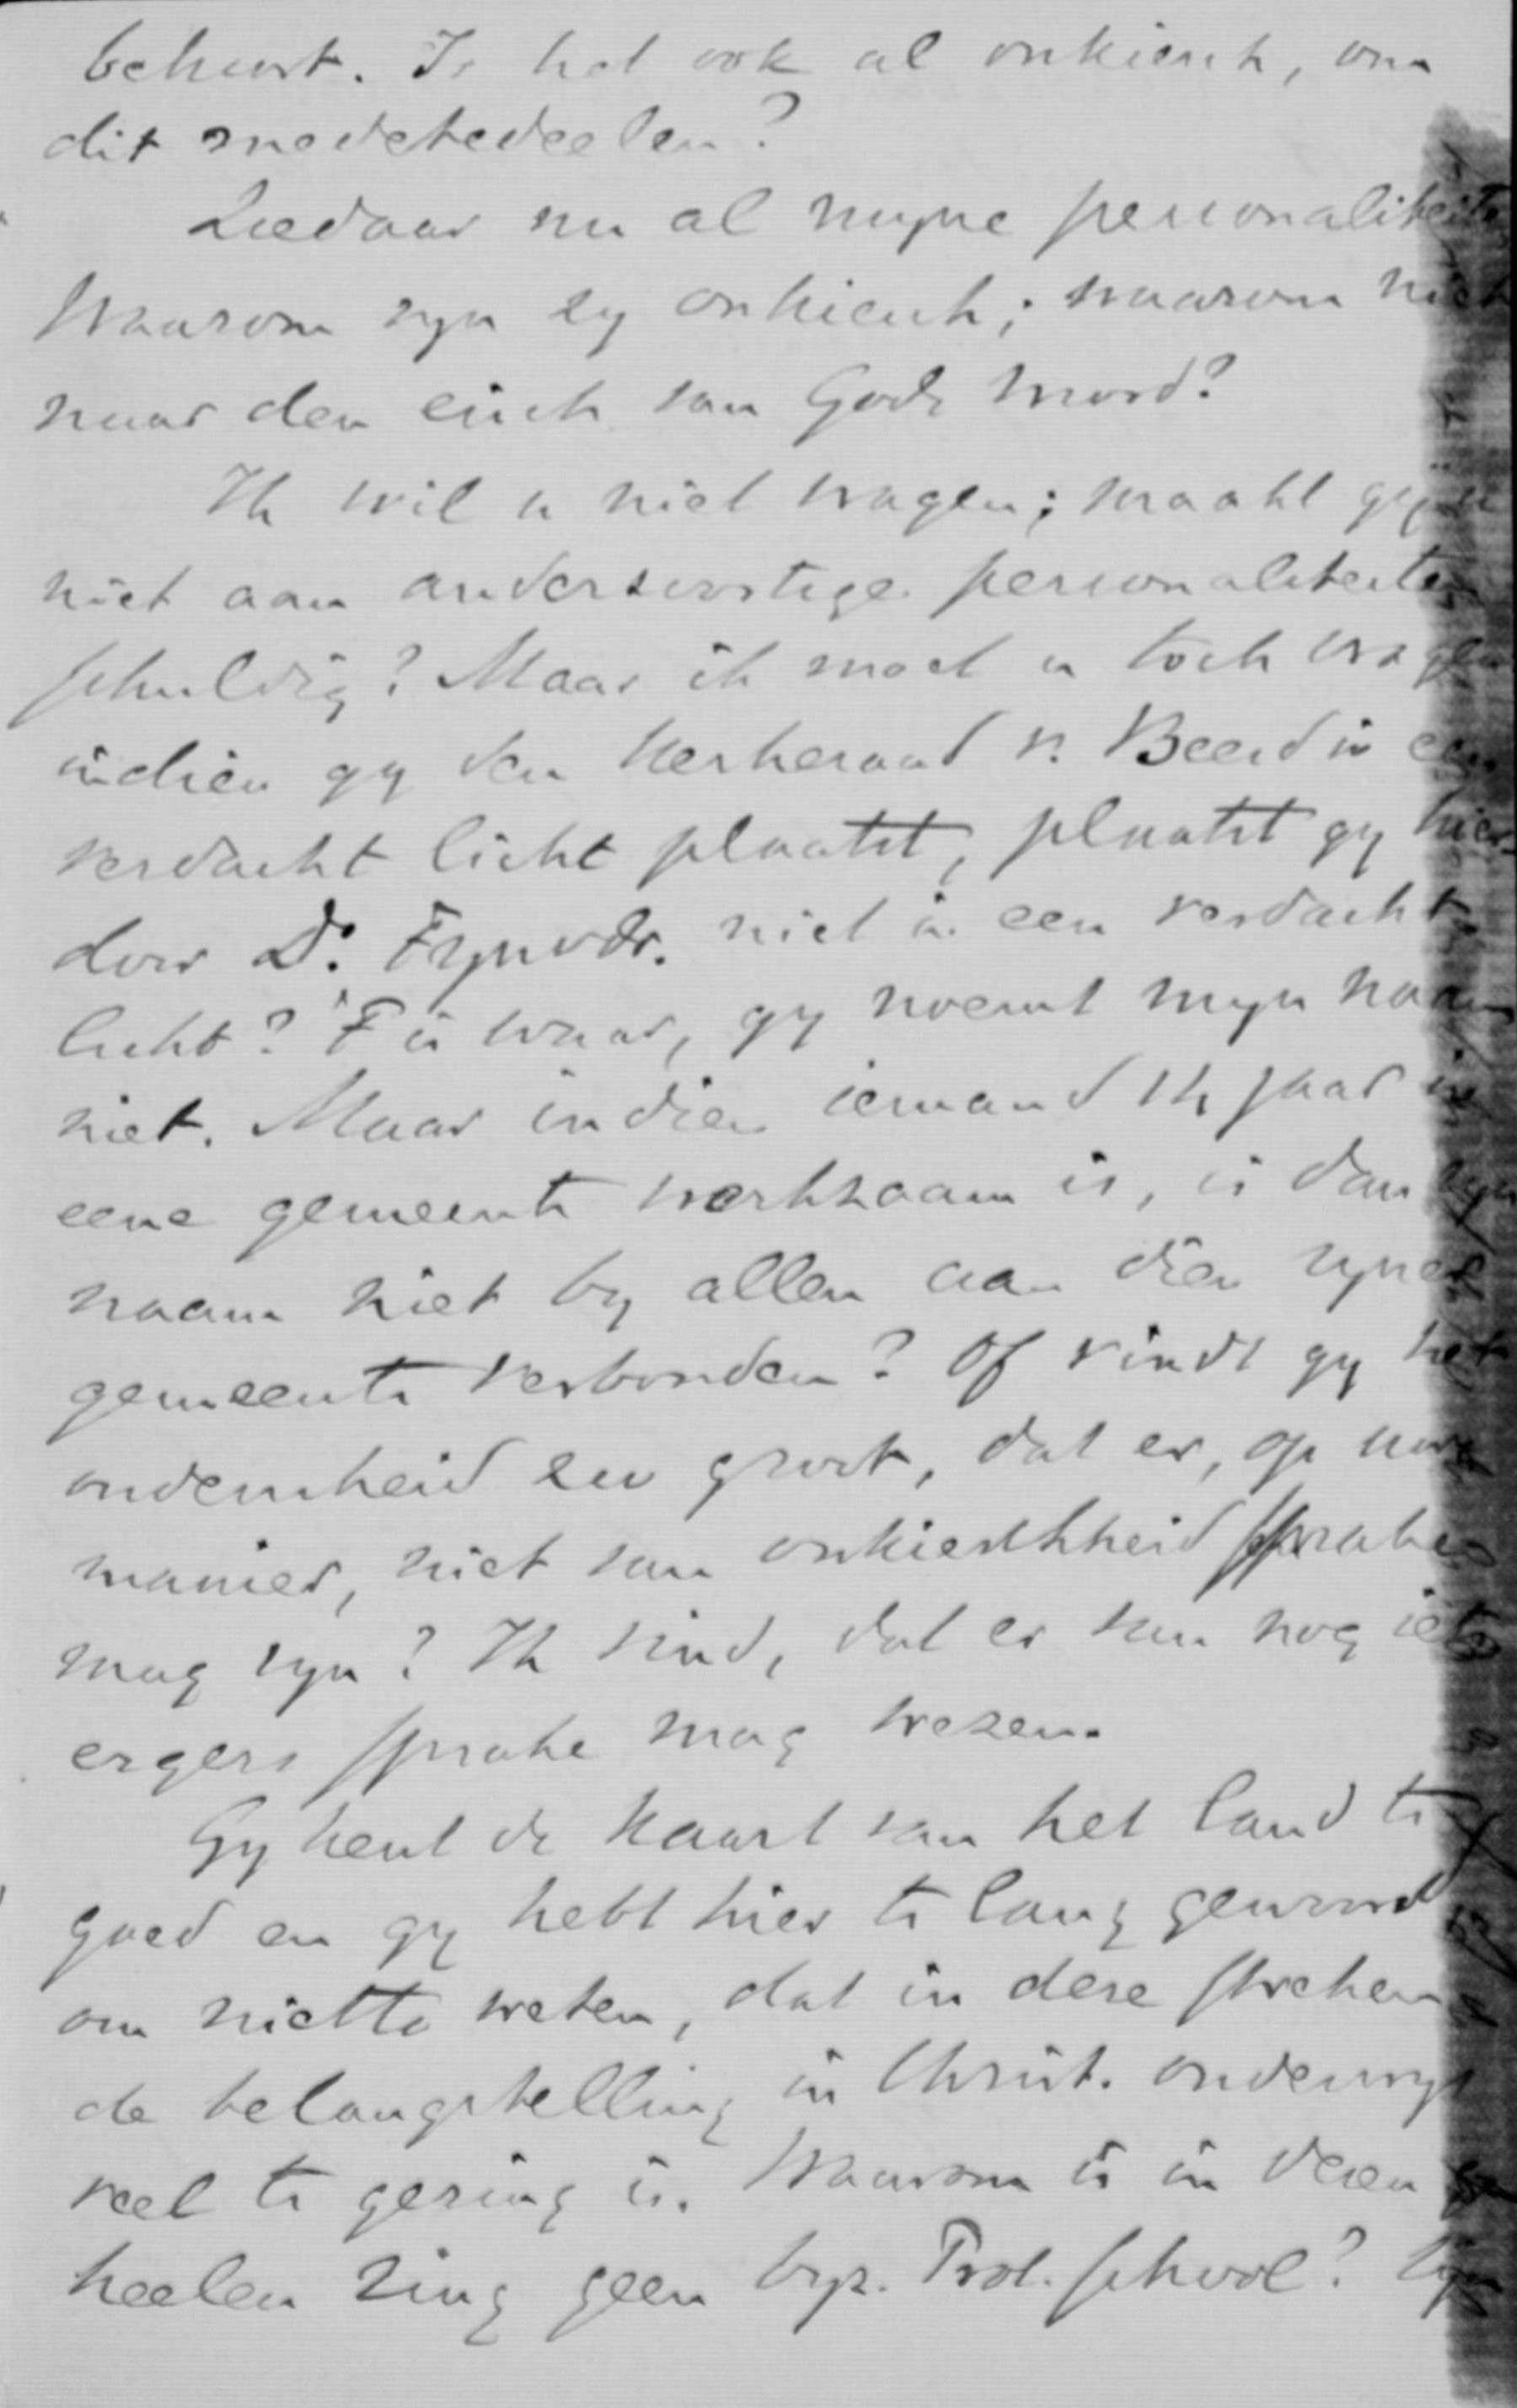 behoort. Is het ook al onkiesch, om
dit medetedeelen?
Ziedaar nu al myne personaliteiten
Waarom zyn zy onkiesch; waarom niet
naar den eisch van Gods woord?
Ik wil u niet vragen; maakt gy u
niet aan andersoortige personaliteiten
schuldig? Maar ik moet u toch vragen
indien gy den Kerkeraad v. Beerd in een
verdacht licht plaatst, plaatst gy hier
door Ds. Fynvdr. niet in een verdacht
licht? 't Is waar, gy noemt myn naam
niet. Maar indien iemand 14 jaar in
eene gemeente werkzaam is, is dan zyn
naam niet by allen aan dien zyner
gemeente verbonden? Of vindt gy het
onderscheid zoo groot, dat er, op uwe
manier, niet van onkieschheid sprake
mag zyn? Ik vind, dat er van nog iets
ergers sprake mag wezen.
Gy kent de kaart van het land te
goed en gy hebt hier te lang gewoond
om niet te weten, dat in deze streken
de belangstelling in Christ. onderwys
veel te gering is. Waarom is in dezen
heelen ring geen byz. Prot. school?